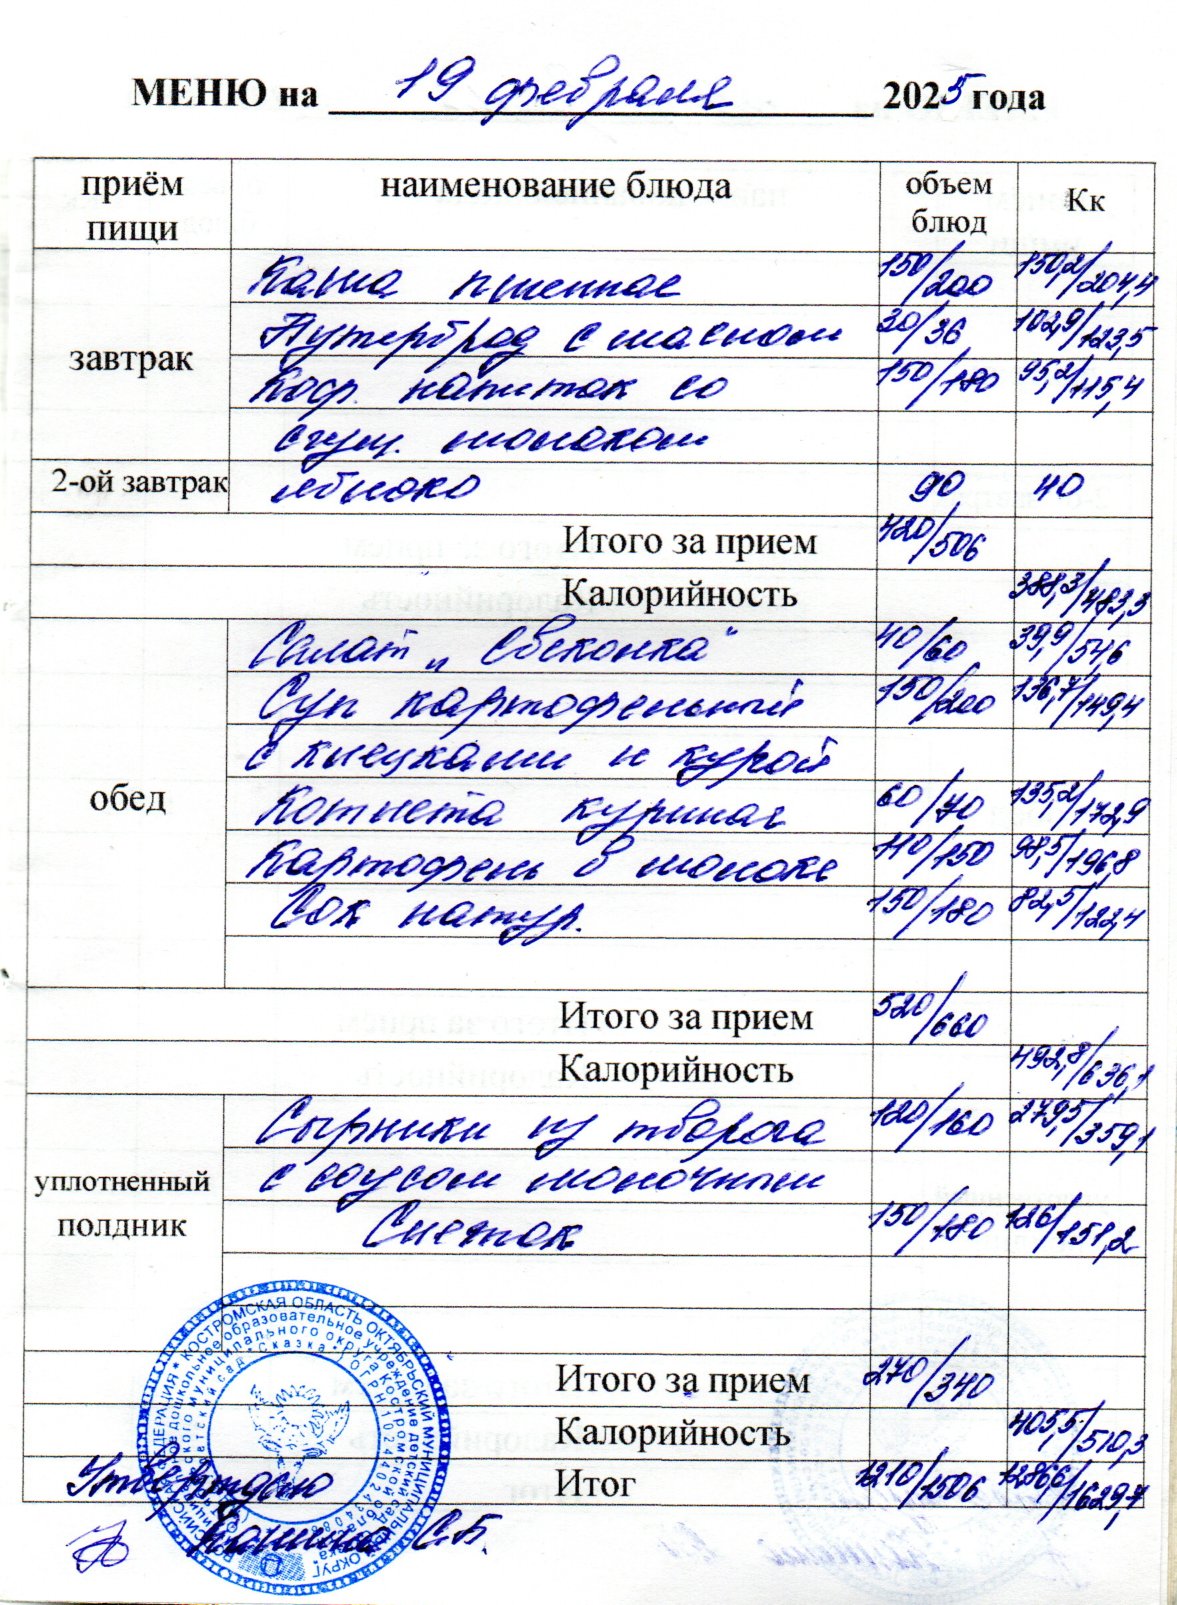 МЕНЮ на 19 февраля 2025 года
приём пищи наименование блюда объем блюд Кк
завтрак
Каша пшенная 150/200 150,2/204,4
Бутерброд с маслом 30/36 102,9/123,5
Коф. напиток со 150/180 95,2/115,4
сгущ. молоком
2-ой завтрак яблоко 90 40
Итого за прием 420/506
Калорийность 388,3/483,3
обед
Салат „Свеколка“ 40/60 39,9/54,6
Суп картофельный 150/200 136,7/149,4
с клецками и курой
Котлета куриная 60/70 135,2/172,9
Картофель в молоке 110/150 98,5/196,8
Сок натур. 150/180 82,5/122,4
Итого за прием 520/660
Калорийность 492,8/636,1
уплотненный полдник
Сырники из творога 120/160 279,5/359,1
с соусом молочным
Снежок 150/180 126/151,2
Итого за прием 270/340
Калорийность 405,5/510,3
Итог 1210/1506 1286,6/1629,7
КОСТРОМСКАЯ ОБЛАСТЬ ОКТЯБРЬСКИЙ МУНИЦИПАЛЬНЫЙ ОКРУГ
дошкольное образовательное учреждение детский сад
муниципального округа Костромской области
детский сад "Сказка"
Утверждаю
С.Б.